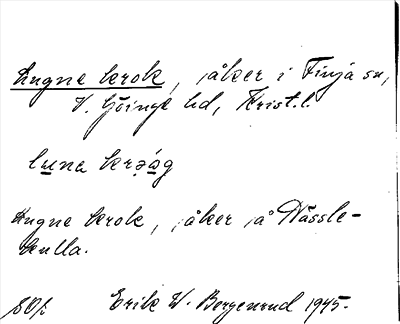 Lugne krok, åker i Finja sn,
V. Göinge hd, Krist.l.
Lugne krok, åker å Hässle-
kulla.
Erik W. Bergenrud 1945.